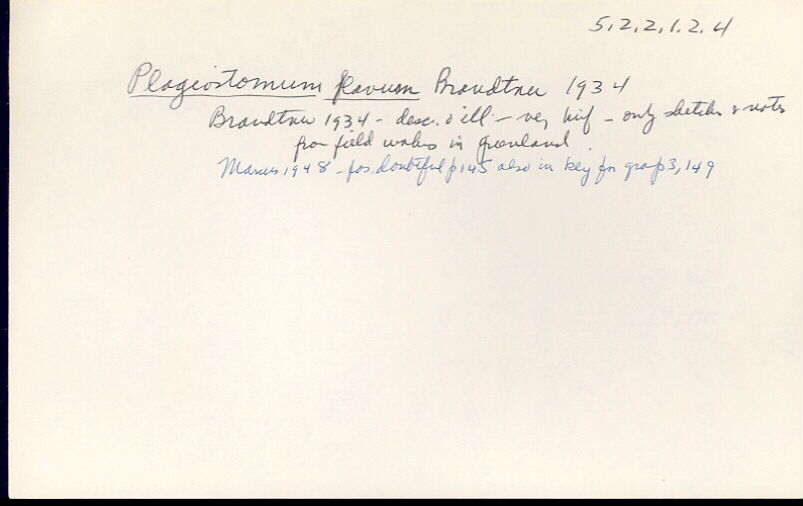 5.2.2.1.2.4
Plagiostomum flavum Brandtner 1934
Brandtner 1934 - desc. & ill. - very brief - only sketches & notes
from field in Greenland.
Marcus 1948 - pos. doubtful p 145 also in key for group 3, 149